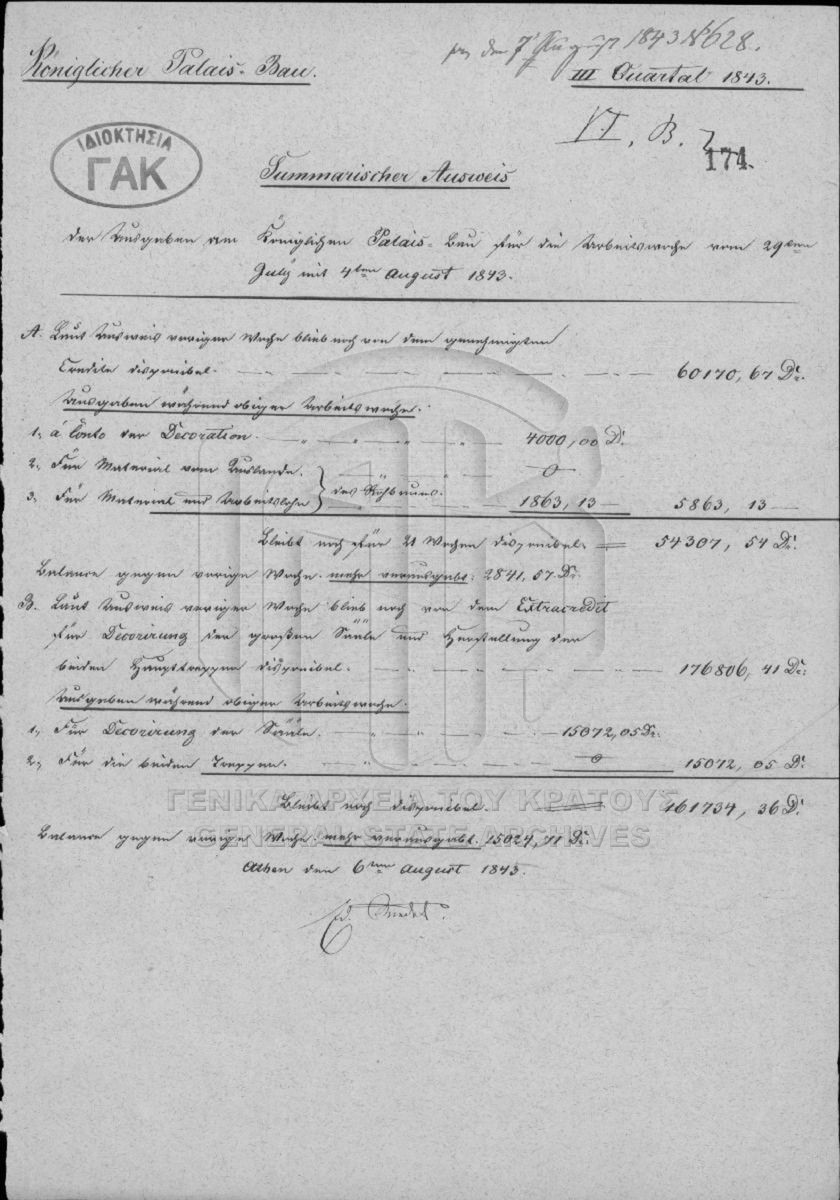 prs den 7t August 1843 № 628.
Königlicher Palais-Bau.
III Quartal 1843.
VI. B.
174.
ΙΔΙΟΚΤΗΣΙΑ
ΓΑΚ
Summarischer Ausweis
der Ausgaben am Königlichen Palais-Bau für die Arbeitswoche vom 29ten
July mit 4ten August 1843.
A. Laut Ausweis voriger Woche blieb noch von dem genehmigten
Credite disponibel. 60170, 67 Dr.
Ausgaben während obiger Arbeitswoche.
1., á Conto der Decoration. 4000, 00 Dr.
2., Für Material vom Auslande. 0
3., Für Material und Arbeitslohn } des Rohbaues. 1863, 13 5863, 13
Bleibt noch für 21 Wochen disponibel. 54307, 54 Dr.
Balance gegen vorige Woche. mehr verausgabt: 2841, 57 Dr.
B. Laut Ausweis voriger Woche blieb noch von dem Extracredit
für Decorirung der großen Sääle und Herstellung der
beiden Haupttreppen disponibel. 176806, 41 Dr.
Ausgaben während obiger Arbeitswoche.
1., Für Decorirung der Sääle. 15072, 05 Dr.
2., Für die beiden Treppen. 0 15072, 05 Dr.
Bleibt noch disponibel. 161734, 36 Dr.
ΓΕΝΙΚΑ ΑΡΧΕΙΑ ΤΟΥ ΚΡΑΤΟΥΣ
GENERAL STATE ARCHIVES
Balance gegen vorige Woche. mehr verausgabt. 15024, 71 Dr.
Athen den 6ten August 1843.